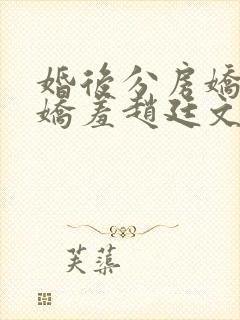 婚後分房嬌
嬌羞趙廷文
芙蕖